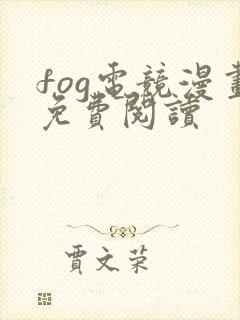 fog電競漫畫
免費閱讀
賈文荣